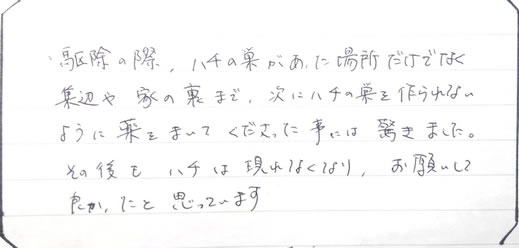 駆除の際、ハチの巣があった場所だけでなく
集辺や家の裏まで、次にハチの巣を作られない
ように薬をまいてくださった事には驚きました。
その後もハチは現れなくなり、お願いして
良かったと思っています